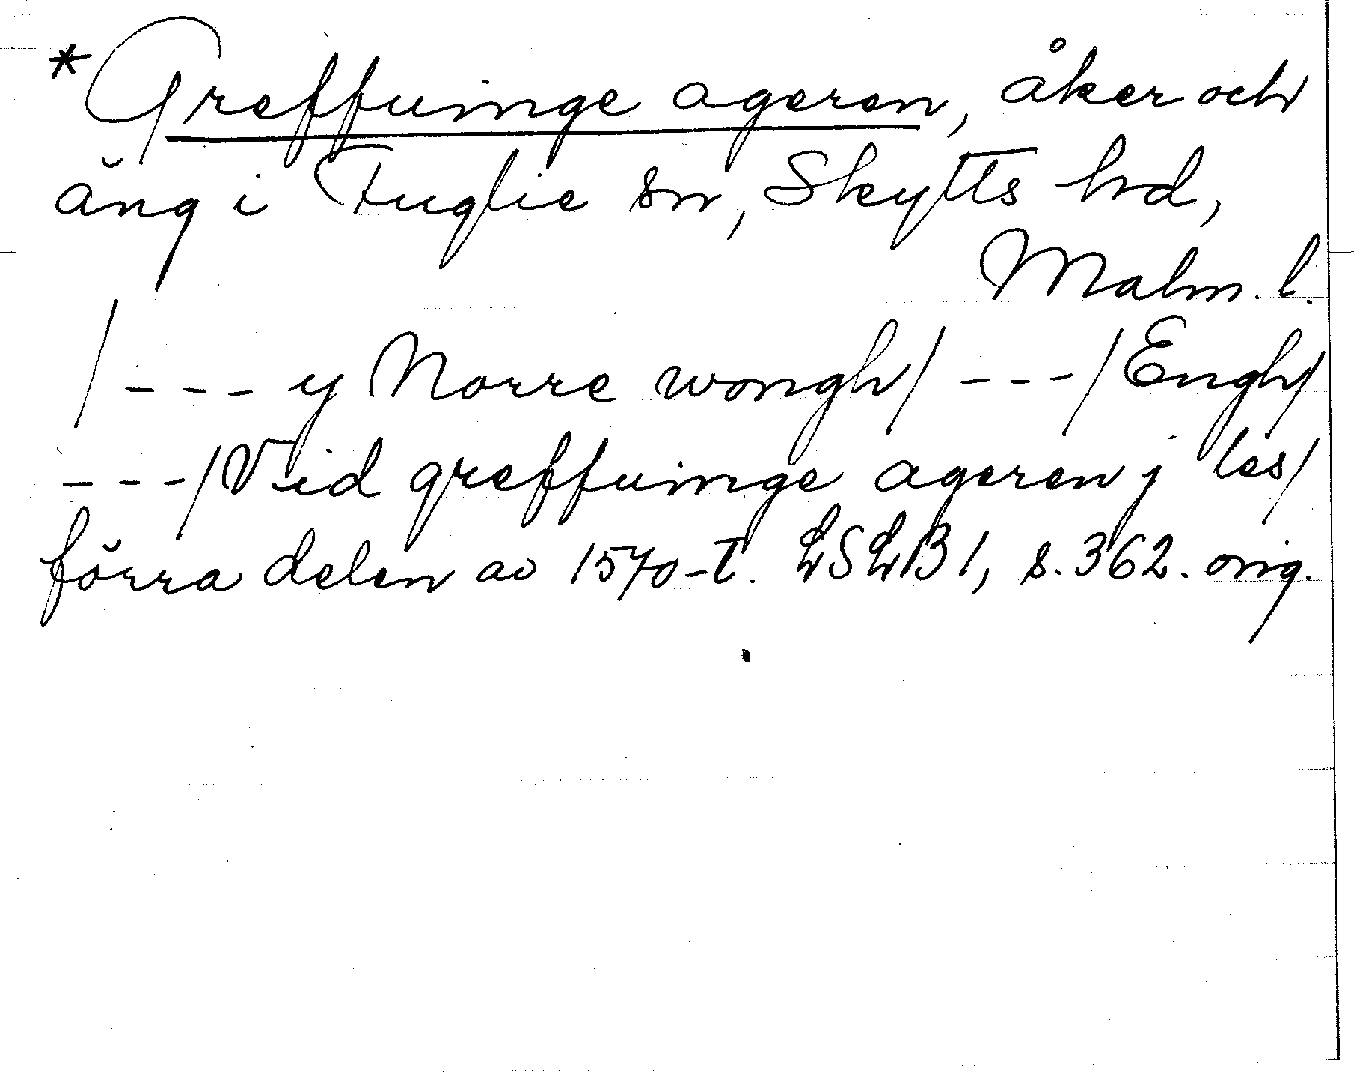 *Greffuinge ageren, åker och
äng i Fuglie sn, Skytts hd,
Malm. l.
/--- y Norre wongh/ ---/Engh/
---/Vid greffuinge ageren j les/
förra delen av 1570-t. LSLB 1, s. 362. orig.